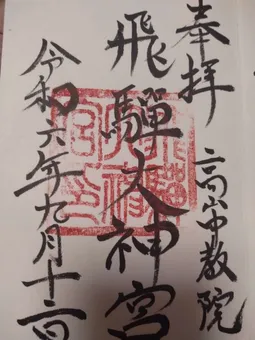 奉拝
高山中教院
飛驒大神宮
令和六年九月十三日